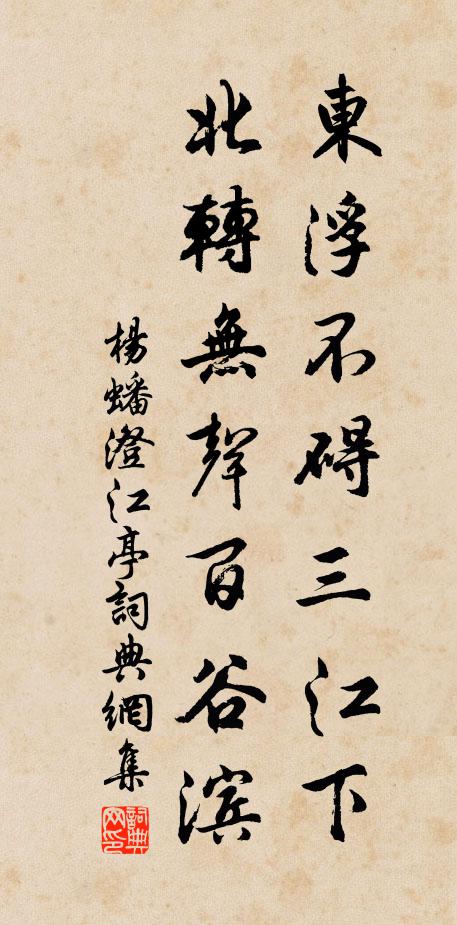 東浮不碍三江下
北轉無聲百谷濱
楊蟠澄江亭詞典網集
詞典网印